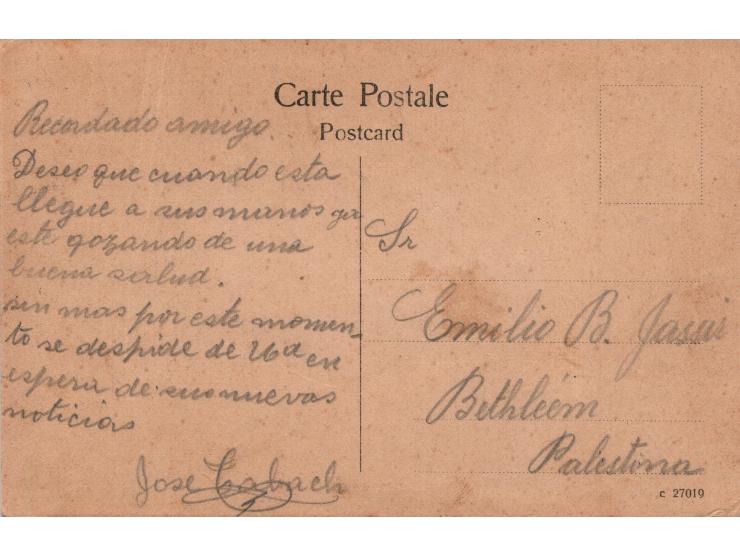 Carte Postale
Postcard
Recordado amigo.
Deseo que cuando esta
llegue a sus manos ya
este gozando de una
buena salud.
sin mas por este momen-
to se despide de Ud en
espera de sus nuevas
noticias
Jose
Sr
Emilio B.
Bethleém
Palestina
c 27019